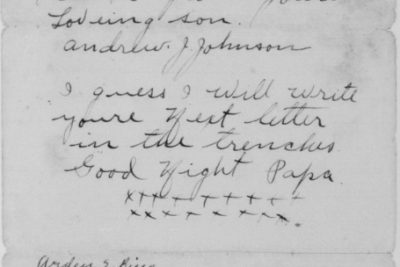 Loveing son.
andrew. J. Johnson
I guess I will write
youre Next letter
in the trenches
Good Night Papa.
x++ + + + + + +
xx x + x + x x x.